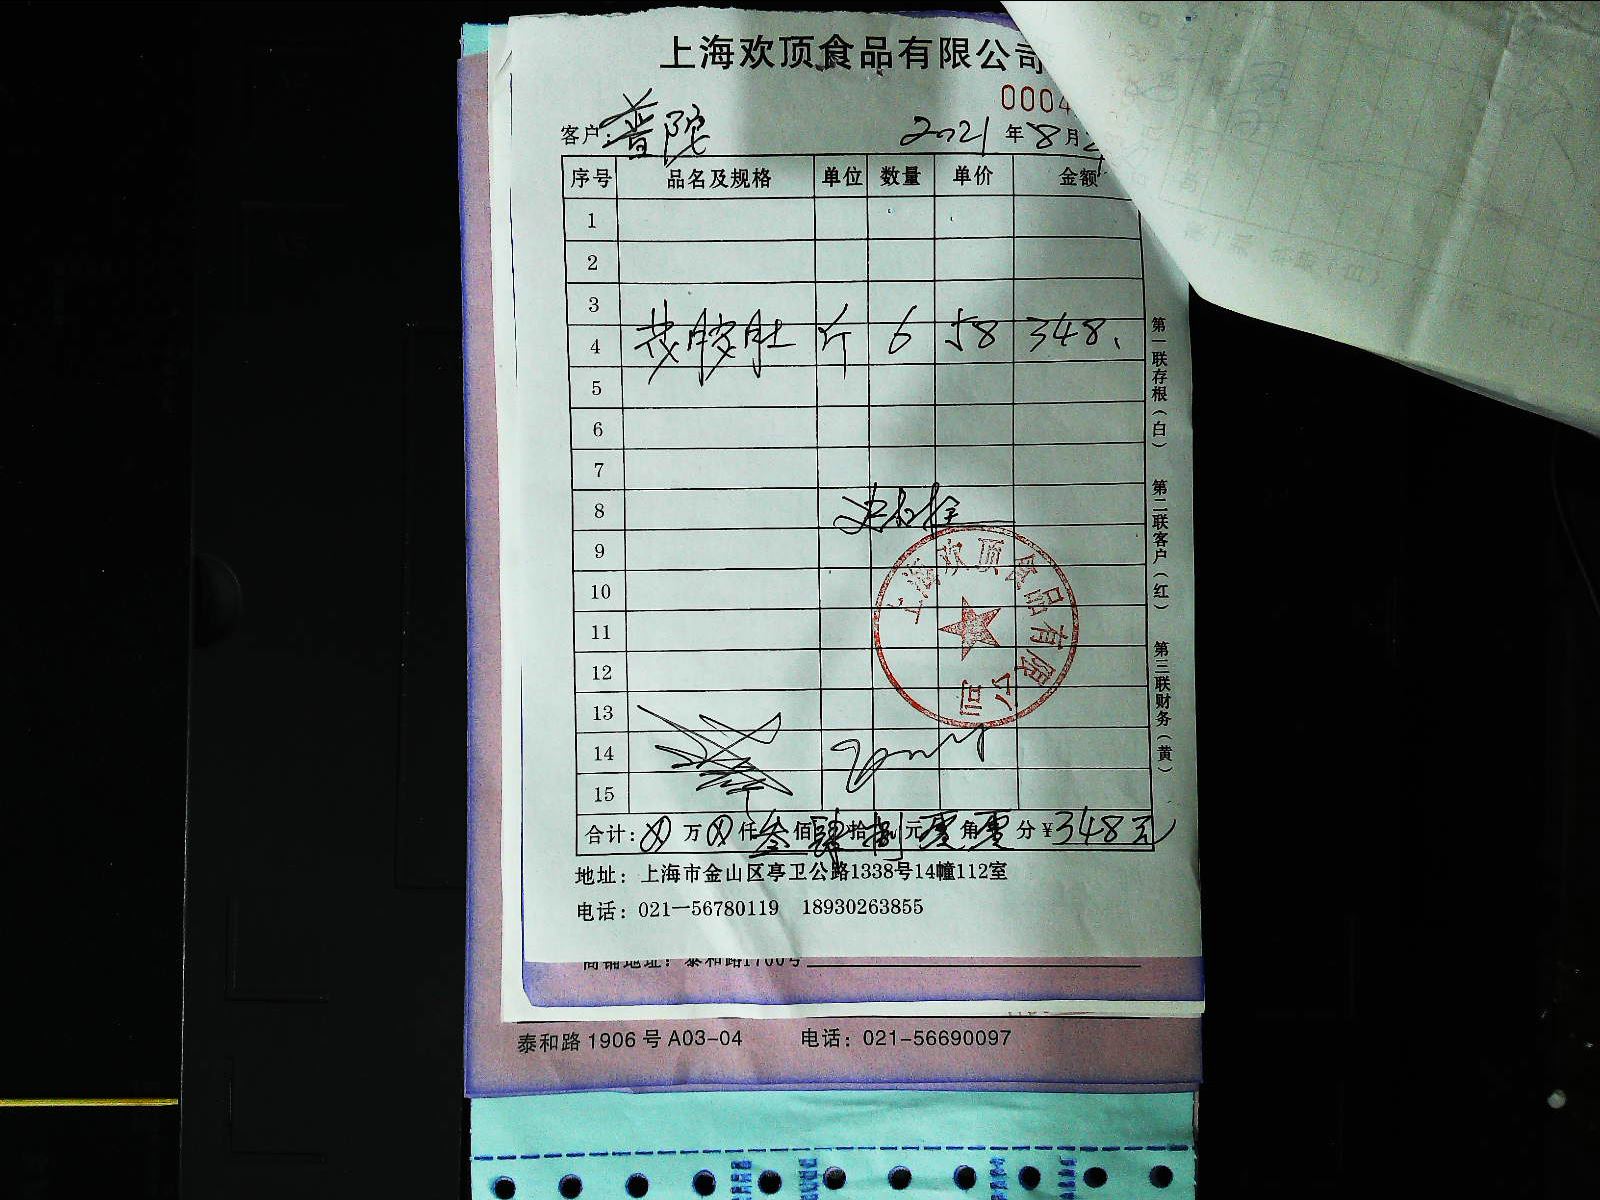 上海欢顶食品有限公司
0004
客户: 普陀 2021 年 8 月
序号 品名及规格 单位 数量 单价 金额
1
2
3
4 斤 6 58 348
5
6
7
8
9
10
11
12
13
14
15
上海欢顶食品有限公司
合计: 万 仟 叁 佰 肆 拾 捌 元 零 角 零 分 ¥348元
地址: 上海市金山区亭卫公路1338号14幢112室
电话: 021—56780119 18930263855
第一联存根(白) 第二联客户(红) 第三联财务(黄)
商铺地址: 泰和路1700号
泰和路 1906 号 A03-04 电话: 021-56690097